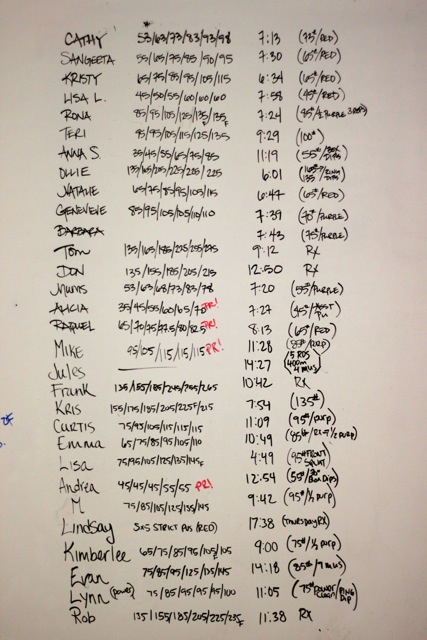 CATHY 53/63/73/83/93/98 7:13 (73#/RED)
SANGEETA 55/65/75/85/90/95 7:30 (65#/RED)
KRISTY 65/75/85/95/105/115 6:34 (65#/RED)
LISA L. 45/50/55/60/60/60 7:58 (45#/RED)
RONA 85/95/105/125/135F/135F 7:24
TERI 85/95/105/115/125/135 9:29 (100#)
ANNA S. 35/45/55/65/75/85 11:19 (55#/BOX DIPS)
OLLIE 135/165/205/225/225/225 6:01
NATALIE 65/75/85/95/105/115 6:47 (65#/RED)
GENEVIEVE 85/95/105/105/110/110 7:39 (70#/PURPLE)
BARBARA 7:43 (75#/PURPLE)
TOM 135/165/185/225/255/275 9:12 RX
DON 135/155/185/205/215 12:50 RX
MUMS 53/63/68/73/83/78 7:20 (55#/PURPLE)
ALICIA 35/45/55/60/65/70 PR! 7:27
RAQUEL 65/70/75/77.5/80/82.5 PR! 8:13 (65#/RED)
MIKE 95/105/115/115/115 PR! 11:28 (85#/PURP)
Jules 14:27 (5 RDS 400m 4 MUS)
Frank 135/155/185/245/255/265 10:42 RX
KRIS 155/75/185/205/225F/215 7:54 (135#)
CURTIS 75/95/105/115/115/115 11:09 (95#/purp)
Emma 65/75/85/95/105/110 10:49
Lisa 75/95/105/125/135/145F 4:49 (95# FRONT SQUAT)
Andrea 45/45/45/55/55 PR! 12:54
M 75/85/105/125/135/145 9:42 (95#/½ purp)
Lindsay 5x5 STRICT PUS (RED) 17:38 (THURSDAY RX)
Kimberlee 65/75/85/95/105F/105 9:00 (75#/½ purp)
Evan 75/85/95/125/135/145 14:18 (85#/7 MUS)
Lynn (power) 75/85/95/95/95/100 11:05 (75# POWER CLEAN/RING DIP)
Rob 135/155/185/205/225/235F 11:38 RX